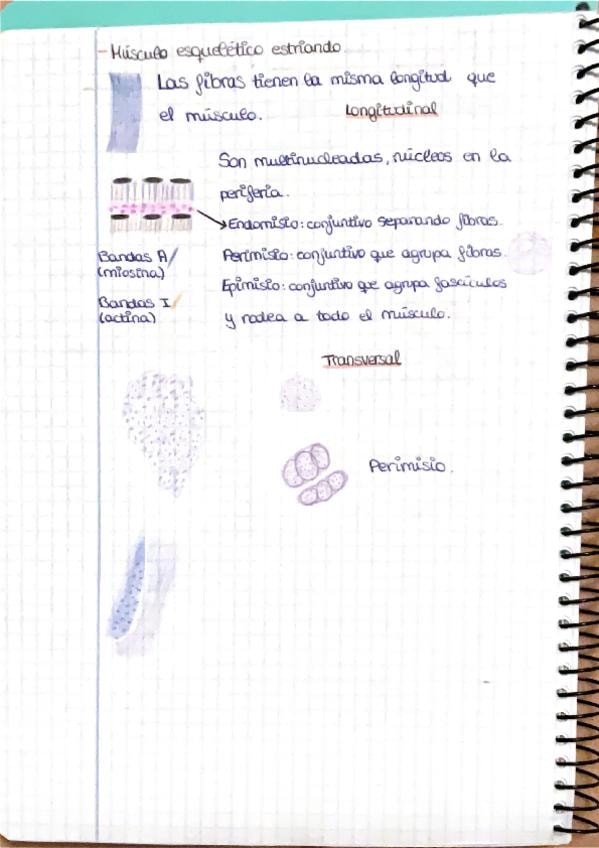 - Músculo esquelético estriando.
Las fibras tienen la misma longitud que
el músculo.
Longitudinal
Son multinucleadas, núcleos en la
periferia.
Endomisio: conjuntivo separando fibras.
Bandas A/
(miosina)
Perimisio: conjuntivo que agrupa fibras.
Epimisio: conjuntivo que agrupa fascículos
Bandas I/
(actina)
y rodea a todo el músculo.
Transversal
Perimisio.